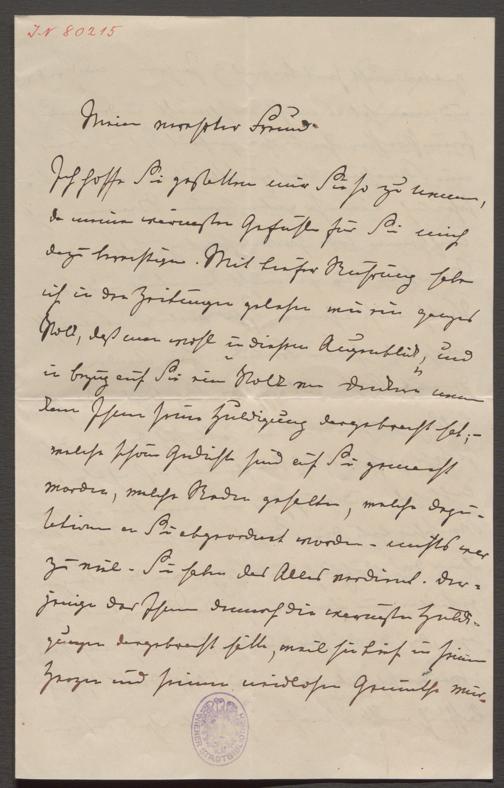 I.N 80215
Mein verehrter Freund
Ich hoffe Sie gestatten mir Sie so zu nennen,
da meine wärmsten Gefühle für Sie mich
dazu berechtigen. Mit tiefer Rührung habe
ich in den Zeitungen gelesen wie ein ganzes
Volk, daß man wohl in diesem Augenblick, und
in bezug auf Sie ein "Volk von Denkern" nennen
kann Ihnen seine Huldigung dargebracht hat, –
welche schöne Gedichte sind auf Sie gemacht
worden, welche Reden gehalten, welche Depu-
tationen an Sie abgeordnet worden – nichts war
zu viel – Sie haben das Alles verdient. Der-
jenige der Ihnen dennoch die wärmsten Huldi-
gungen dargebracht hätte, weil sie tief in seinem
Herzen und seinem neidlosen Gemüthe wur-
WIENER STADTBIBLIOTHEK